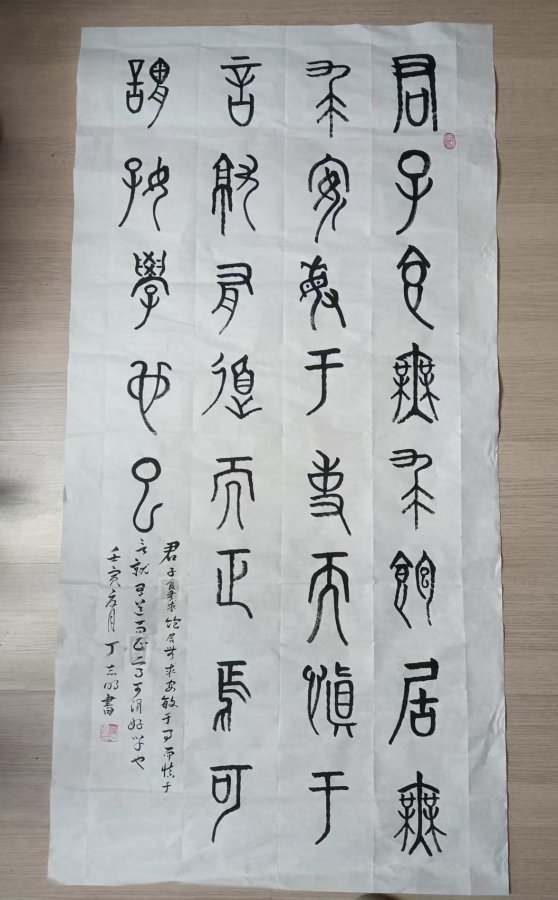 君子食無求飽居無
求安敏于事而慎于
言就有道而正焉可
謂好學也已
君子食無求飽居無求安敏于事而慎于
言就有道而正焉可謂好学也
壬寅 月丁志明書